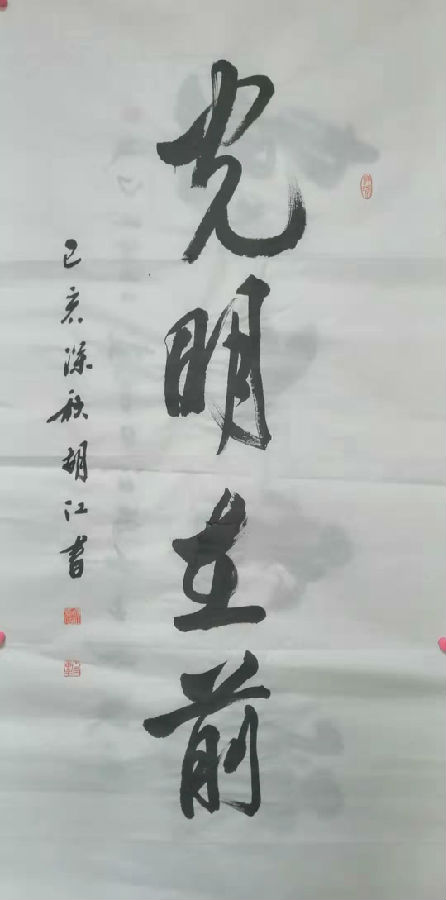 光明在前
己亥深秋胡江書